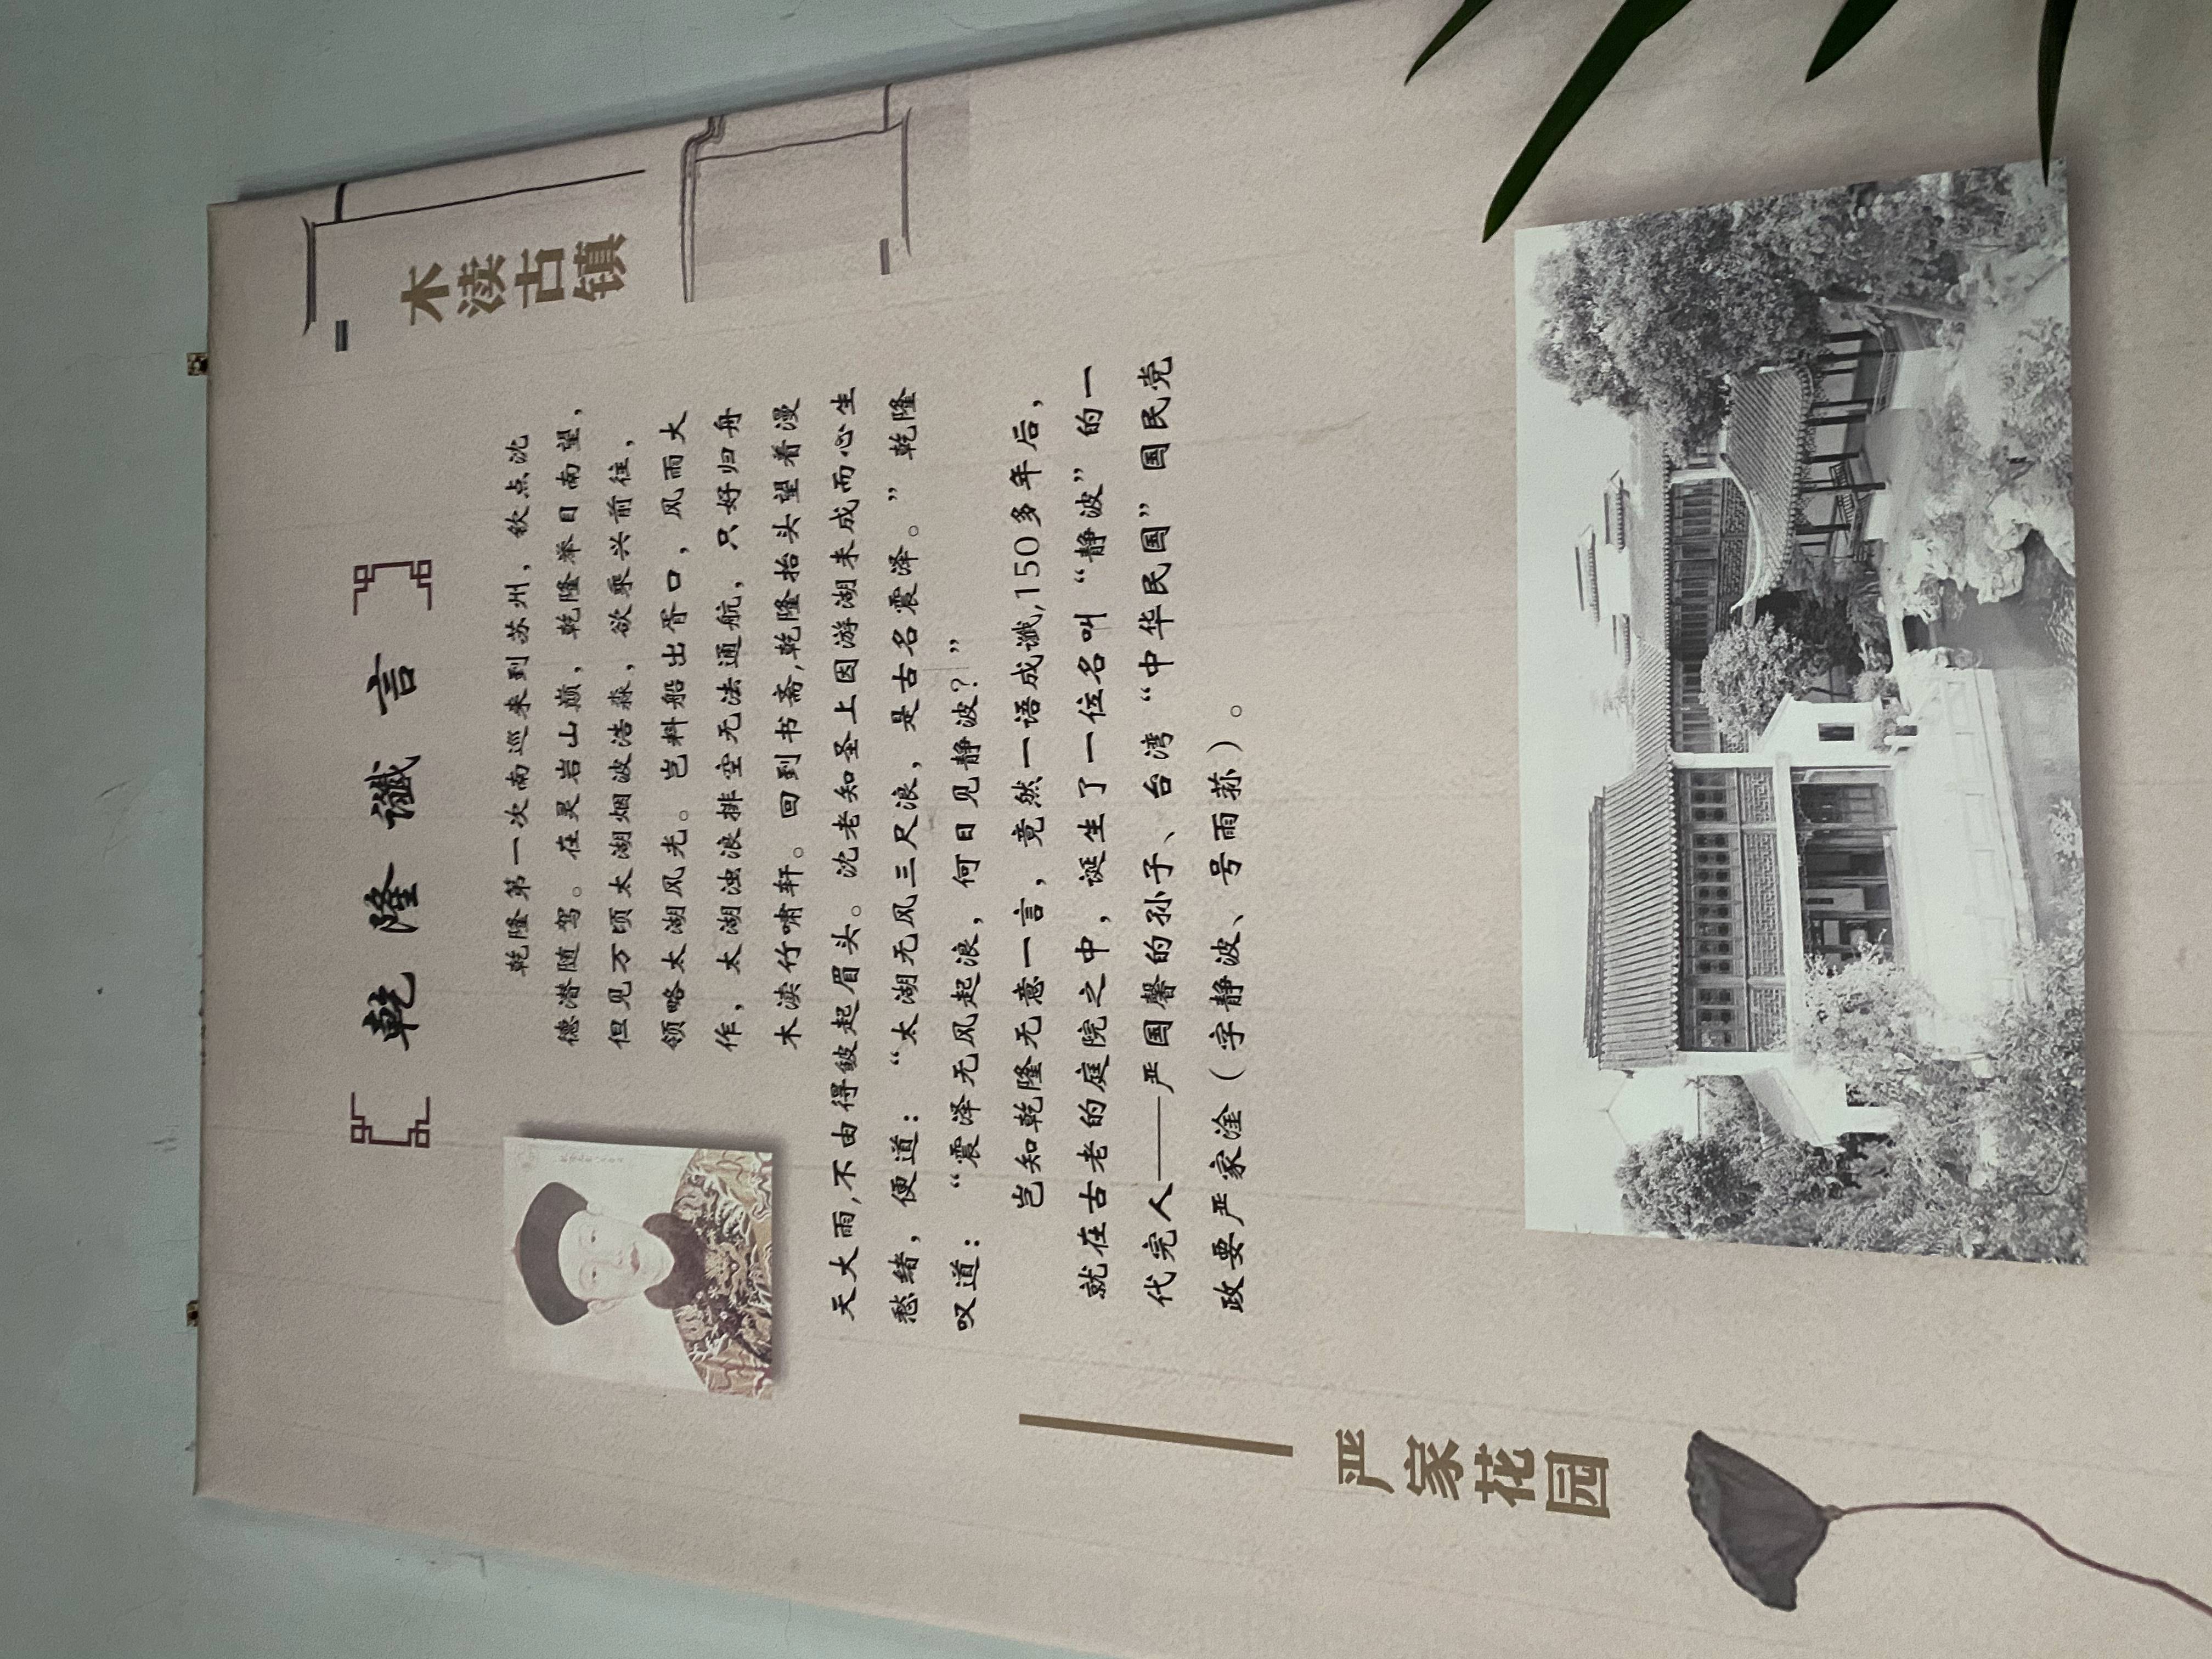 木渎古镇
乾隆谶言
乾隆第一次南巡来到苏州，钦点沈
德潜随驾。在灵岩山巅，乾隆举目南望，
但见万顷太湖烟波浩淼，欲乘兴前往，
领略太湖风光。岂料船出胥口，风雨大
作，太湖浊浪排空无法通航，只好归舟
木渎竹啸轩。回到书斋,乾隆抬头望着漫
天大雨,不由得皱起眉头。沈老知圣上因游湖未成而心生
愁绪，便道：“太湖无风三尺浪，是古名震泽。”乾隆
叹道：“震泽无风起浪，何日见静波？”
岂知乾隆无意一言，竟然一语成谶,150多年后，
就在古老的庭院之中，诞生了一位名叫“静波”的一
代完人——严国馨的孙子、台湾“中华民国”国民党
政要严家淦（字静波、号雨荪）。
严家花园